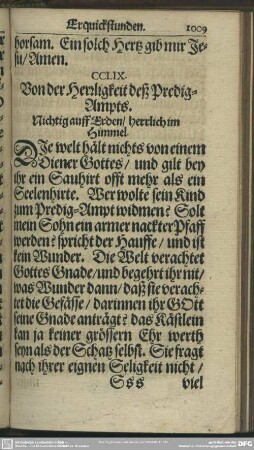 Erquickstunden. 1009
horsam. Ein solch Hertz gib mir Je-
su/ Amen.
CCLIX.
Von der Herrligkeit deß Predig-
Ampts.
Nichtig auff Erden/ herrlich im
Himmel
DIe welt hält nichts von einem
Diener Gottes/ und gilt bey
ihr ein Sauhirt offt mehr als ein
Seelenhirte. Wer wolte sein Kind
zum Predig-Ampt widmen? Solt
mein Sohn ein armer nackter Pfaff
werden? spricht der Hauffe/ und ist
kein Wunder. Die Welt verachtet
Gottes Gnade/ und begehrt ihr nit/
was Wunder dann/ daß sie verach-
tet die Gefässe/ darinnen ihr GOtt
seine Gnade anträgt? das Kästlein
kan ja keiner grössern Ehr werth
seyn als der Schatz selbst. Sie fragt
nach ihrer eignen Seligkeit nicht/
Sss viel